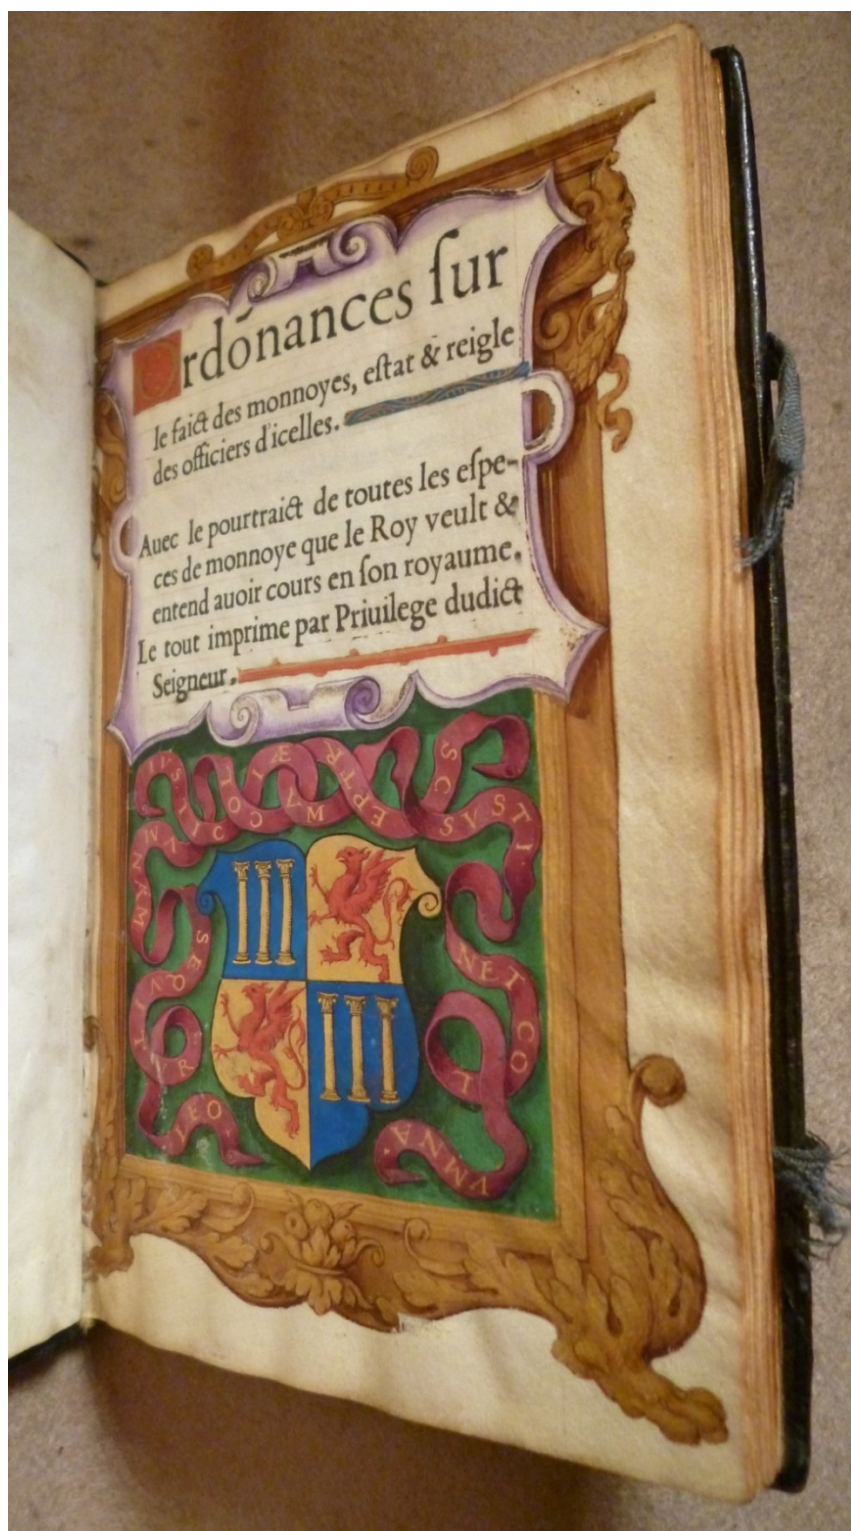 Ordōnances ſur
le faict des monnoyes, eſtat & reigle
des officiers d'icelles.
Auec le pourtraict de toutes les eſpe-
ces de monnoye que le Roy veult &
entend auoir cours en ſon royaume.
Le tout imprime par Priuilege dudict
Seigneur.
SVSTI
NET CO
L
VMNA.
LEO
SEQVI
TVR